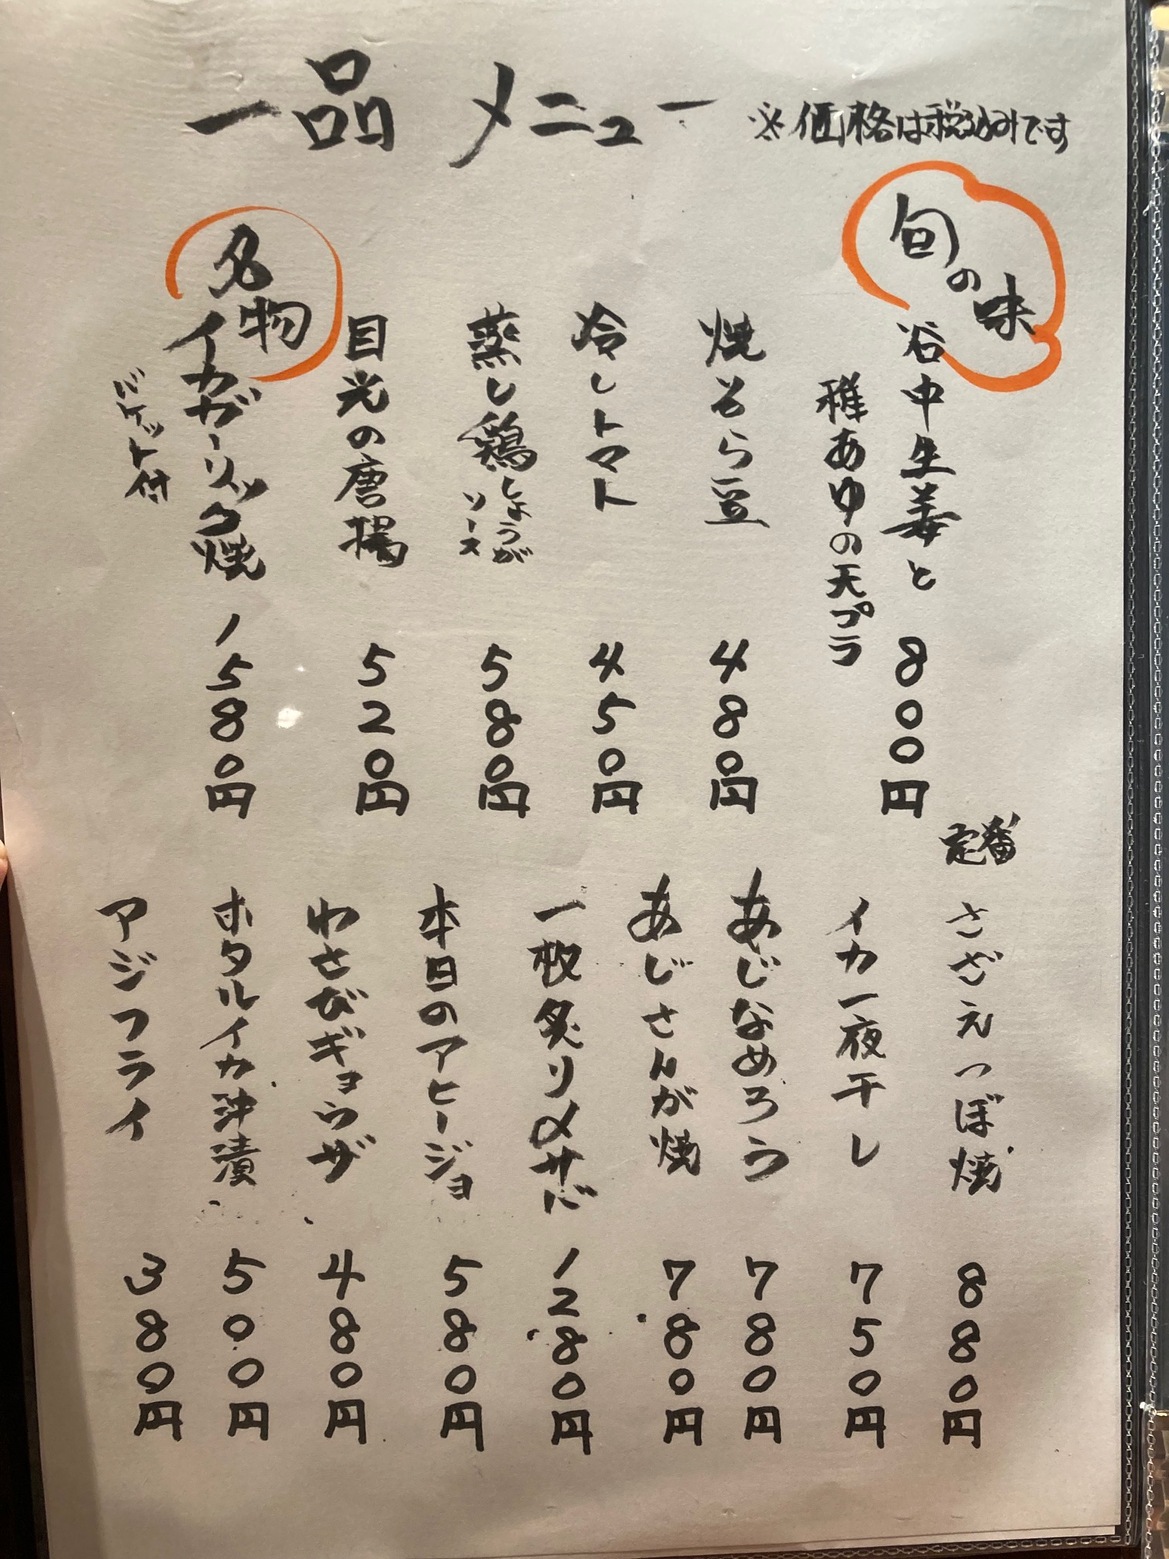 一品 メニュー ※価格は税込みです
旬の味
谷中生姜と
稚あゆの天プラ
800円
焼そら豆 480円
冷しトマト 450円
蒸し鶏しょうが
ソース
580円
目光の唐揚 520円
名物
イカガーリック焼
バケット付
1580円
定番
さざえつぼ焼 880円
イカ一夜干し 750円
あじなめろう 780円
あじさんが焼 780円
一枚炙り〆サバ 1280円
本日のアヒージョ 580円
わさびギョウザ 480円
ホタルイカ沖漬 500円
アジフライ 380円